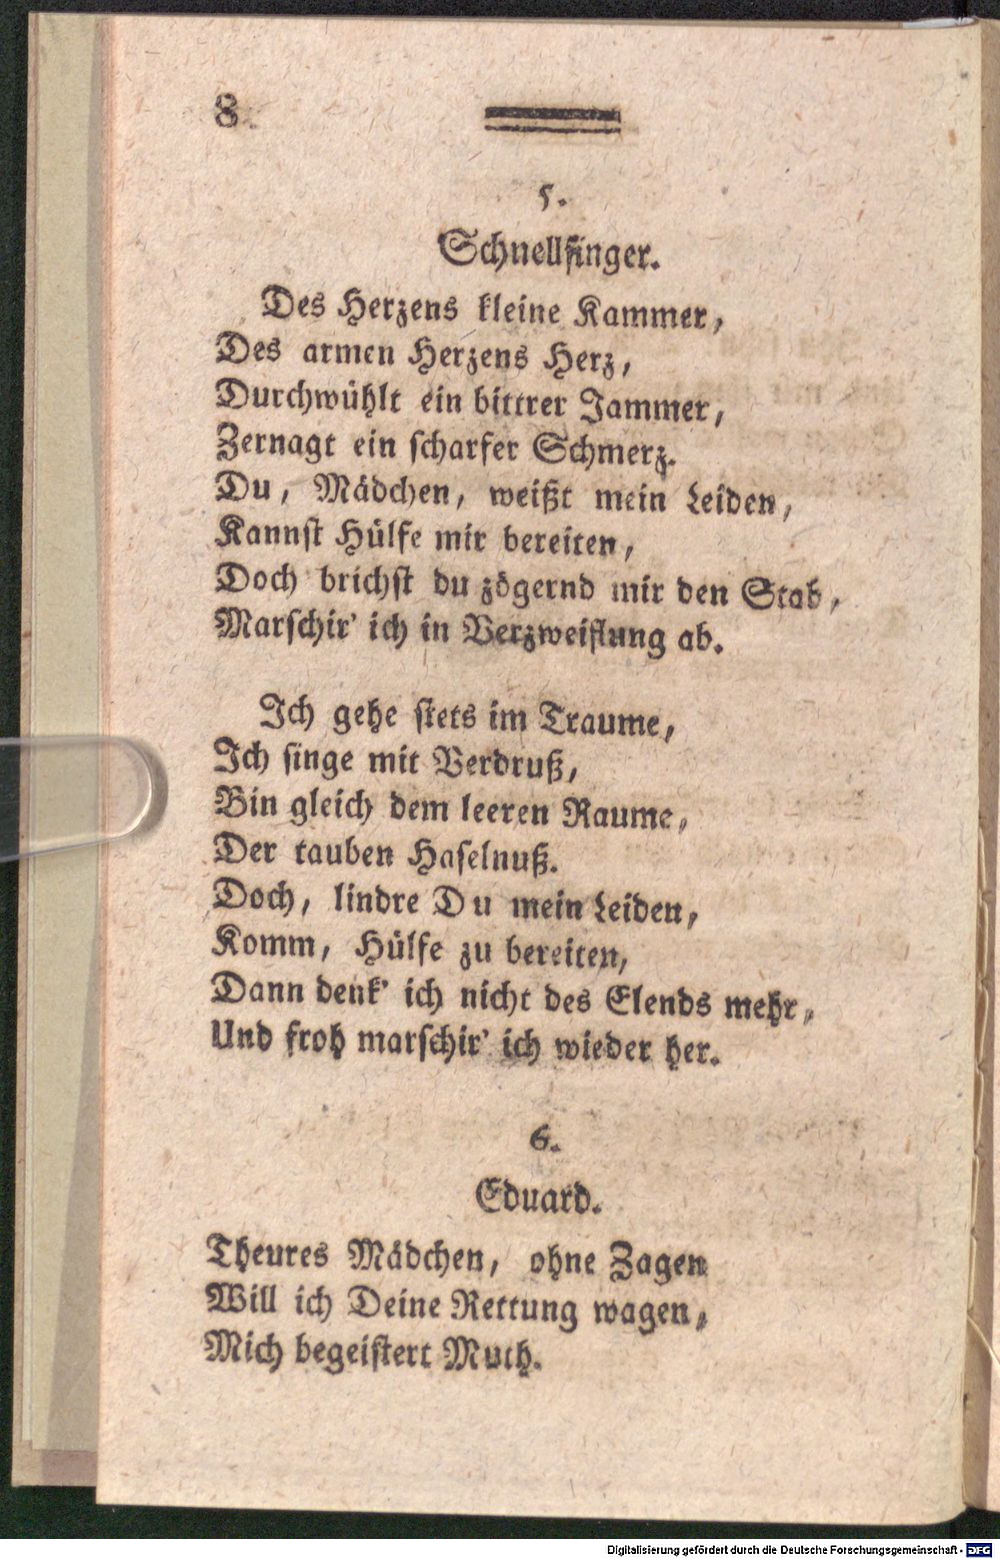 8
5.
Schnellsinger.
Des Herzens kleine Kammer,
Des armen Herzens Herz,
Durchwühlt ein bittrer Jammer,
Zernagt ein scharfer Schmerz.
Du, Mädchen, weißt mein Leiden,
Kannst Hülfe mir bereiten,
Doch brichst du zögernd mir den Stab,
Marschir' ich in Verzweiflung ab.
Ich gehe stets im Traume,
Ich singe mit Verdruß,
Bin gleich dem leeren Raume,
Der tauben Haselnuß.
Doch, lindre Du mein Leiden,
Komm, Hülfe zu bereiten,
Dann denk' ich nicht des Elends mehr,
Und froh marschir' ich wieder her.
6.
Eduard.
Theures Mädchen, ohne Zagen
Will ich Deine Rettung wagen,
Mich begeistert Muth.
Digitalisierung gefördert durch die Deutsche Forschungsgemeinschaft - DFG